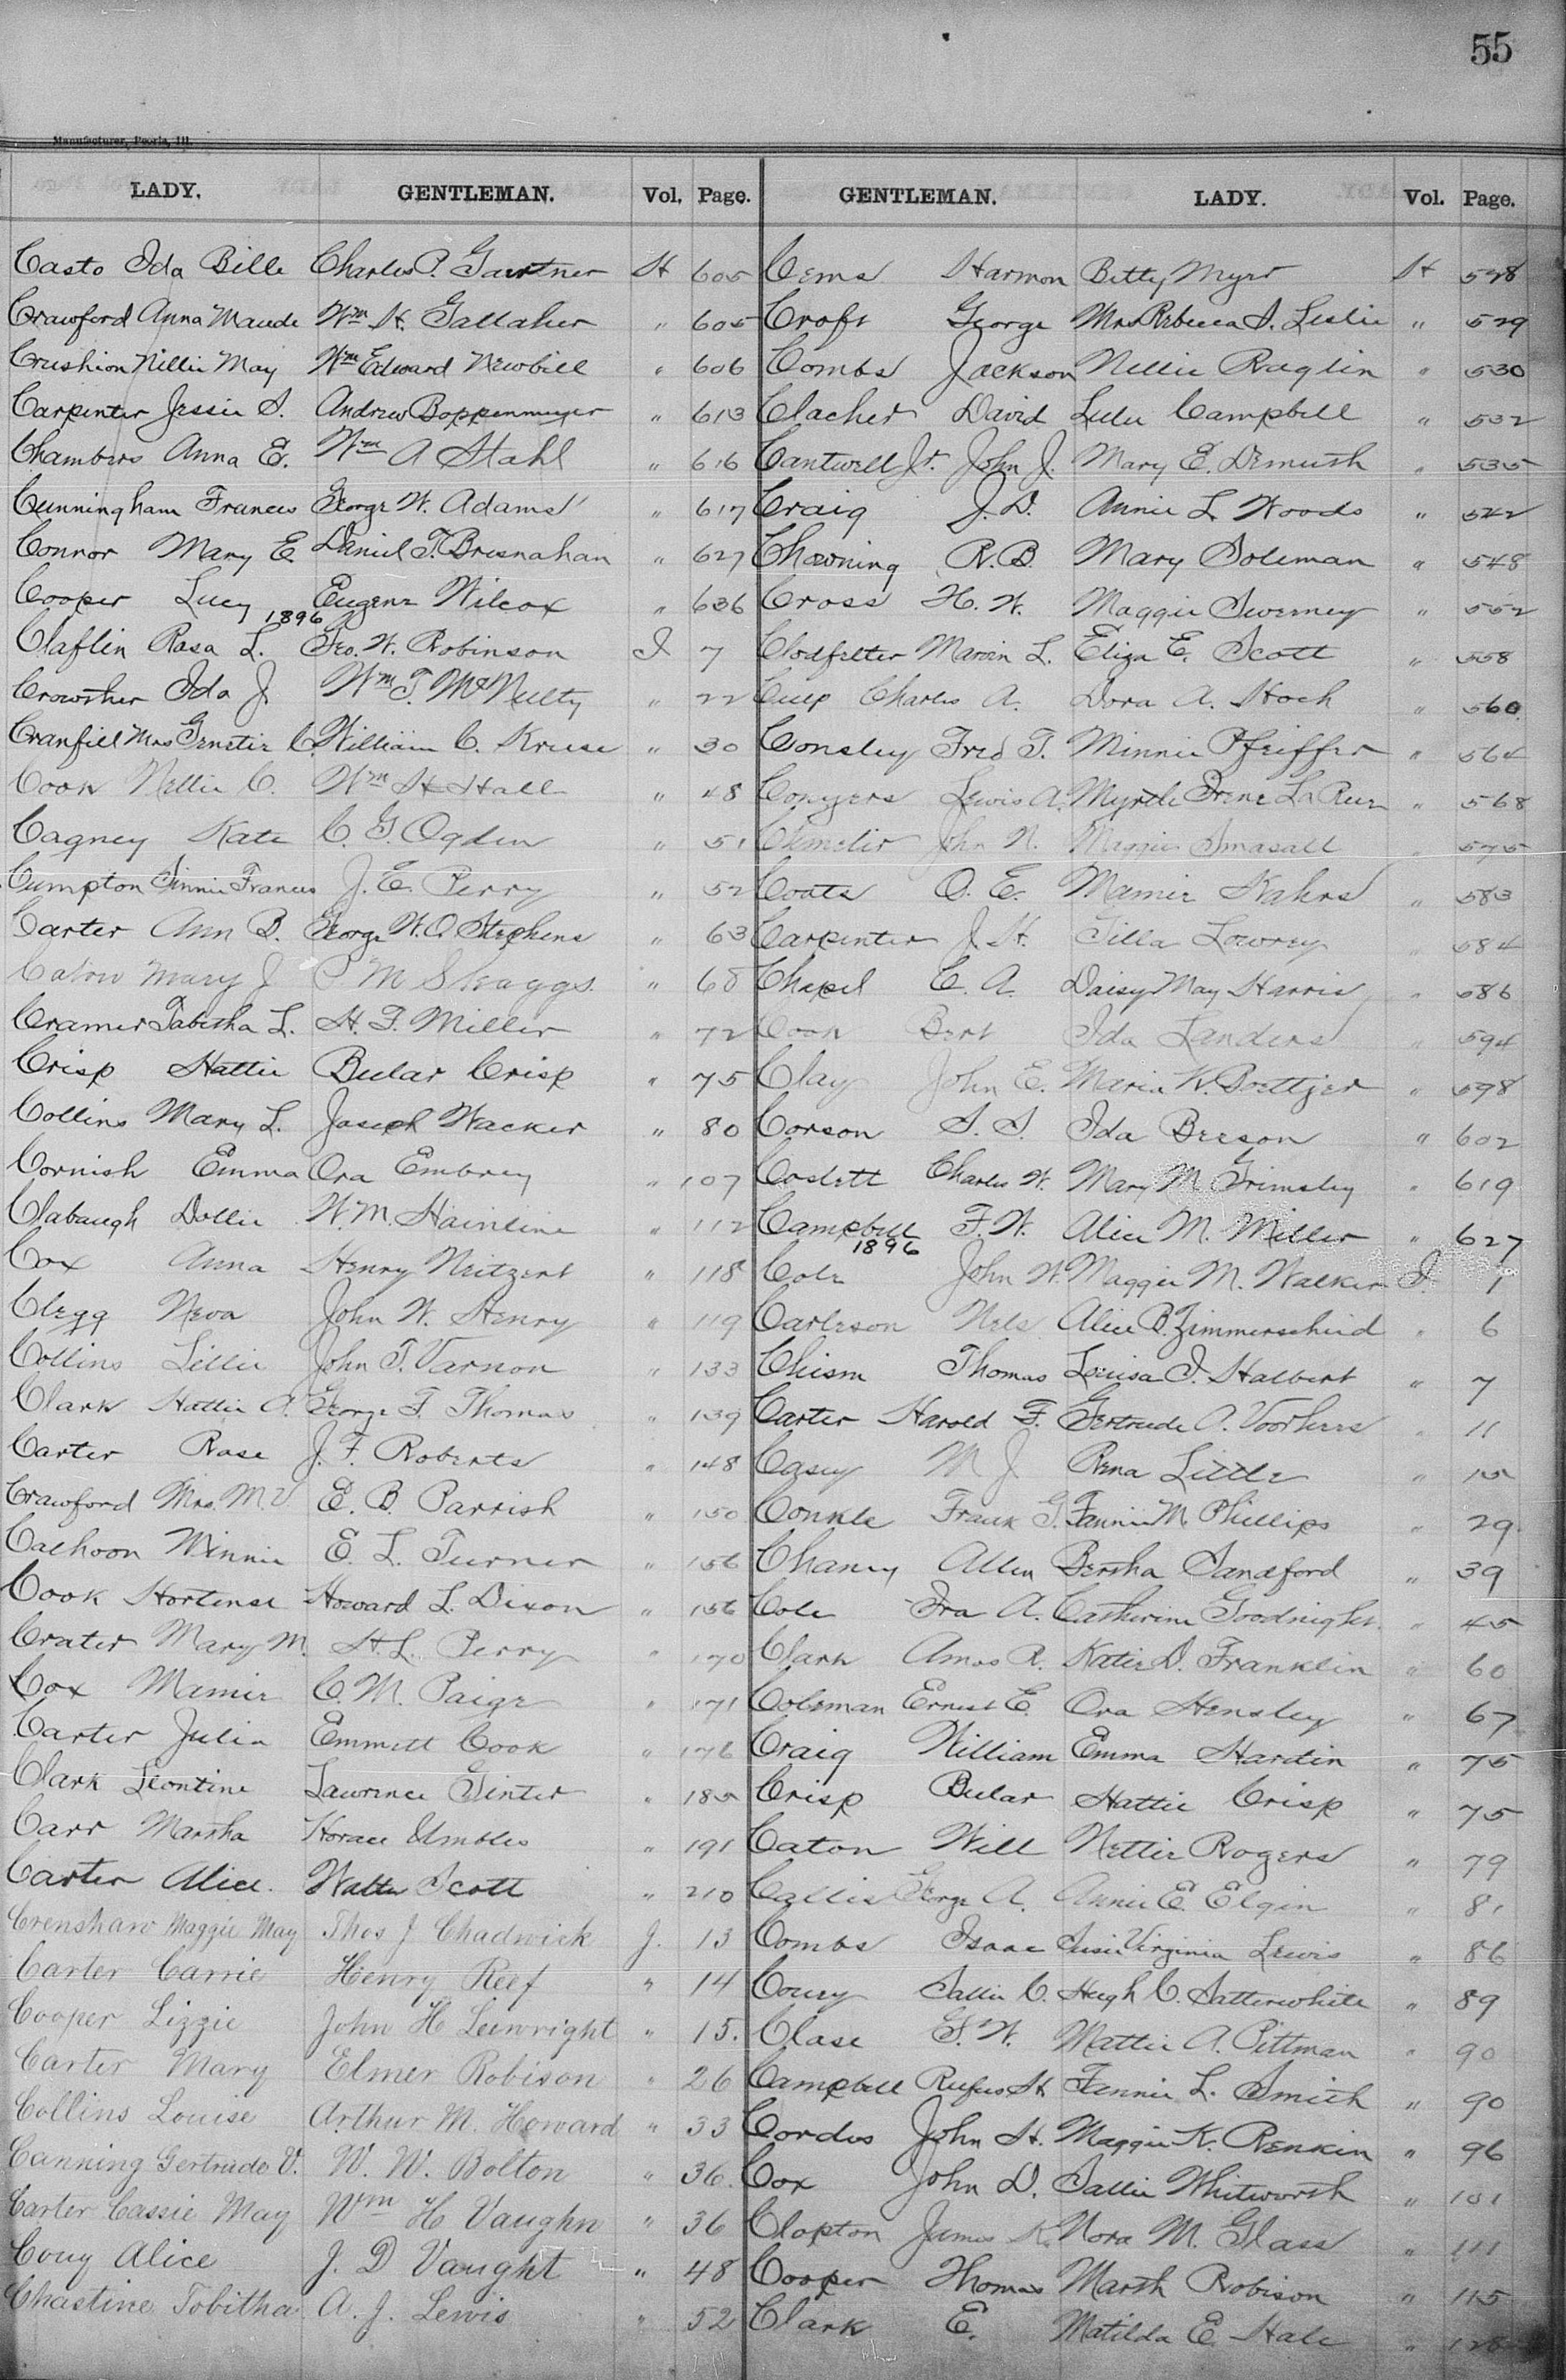 55
Manufacturer, Peoria, Ill.
LADY. GENTLEMAN. Vol. Page. GENTLEMAN. LADY. Vol. Page.
Casto Ida Bille Charles P. Gaertner H 605 Cems Harmon Betty Myrs H 528
Crawford Anna Maude Wm H. Gallaher " 605 Croft George Mrs Rebecca S. Leslie " 529
Crushion Nellie May Wm Edward Newbill " 606 Combs Jackson Nellie Raglin " 530
Carpenter Jessie S. Andrew Boppenmeyer " 613 Clacher David Lulu Campbell " 532
Chambers Anna E. Wm A Stahl " 616 Cantwell Jr. John J. Mary E. Demuth " 535
Cunningham Frances George W. Adams " 617 Craig J. D. Annie L Woods " 542
Connor Mary E. Daniel F. Bresnahan " 627 Chowning R. B. Mary Soleman " 548
Cooper Lucy Eugene Wilcox " 636 Cross H. W. Maggie Sweeney " 552
1896
Claflin Rosa L. Geo. W. Robinson I 7 Clodfelter Marion L. Eliza E. Scott " 558
Crowther Ida J. Wm T. McNulty " 22 Culp Charles A. Dora A. Hoch " 560
Cranfill Mrs Genetie C. William C. Kruse " 30 Consley Fred T. Minnie Pfeiffer " 564
Cook Nellie C. Wm H Hall " 48 Conyers Lewis A. Myrtle Irene La Rue " 568
Cagney Kate C. G. Ogden " 51 John N. Maggie Smasall " 575
Cumpton Frances J. E. Perry " 52 Coats O. E. Mamie Kahrs " 583
Carter Ann B. George W. O. Stephens " 63 Carpenter J. H. Tilla Lowrey " 584
Caton Mary J P. M Skaggs. " 68 Chapel C. A. Daisy May Harris " 586
Cramer Tabitha L. H. F. Miller " 72 Cook Bert Ida Landers " 594
Crisp Hattie Bular Crisp " 75 Clay John E. Maria K. Boettjer " 598
Collins Mary L. Joseph Wacker " 80 Corson S. S. Ida Beeson " 602
Cornish Emma Ora Embrey " 107 Coslett Charles W. Mary M. Grimsley " 619
Clabaugh Dollie W. M. Hainline " 112 Campbell F. W. Alice M. Miller " 627
1896
Cox Anna Henry Neitzert " 118 Cole John W. Maggie M. Walker I. 1
Clegg Neva John W. Henry " 119 Carleson Nels Alice B. Zimmerschied " 6
Collins Lillie John T. Varnon " 133 Chism Thomas Louisa J. Halbert " 7
Clark Hattie A. George F. Thomas " 139 Carter Harold F. Gertrude A. Voorhees " 11
Carter Rose J. F. Roberts " 148 Casey M J Rena Little " 15
Crawford Mrs. M. V. E. B. Parrish " 150 Conkle Frank G. Fannie M. Phillips " 29
Calhoon Minnie E. L. Turner " 156 Chaney Allen Bertha Sandford " 39
Cook Hortense Howard L. Dixon " 156 Cole Ira A. Catherine Goodnight. " 45
Crater Mary M. H. L. Perry " 170 Clark Amos R. Katie D. Franklin " 60
Cox Mamie C. M. Paige " 171 Coleman Ernest E. Ora Hensley " 67
Carter Julia Emmett Cook " 176 Craig William Emma Hardin " 75
Clark Leontine Lawrence Ginter " 185 Crisp Bular Hattie Crisp " 75
Carr Martha Horace Umbles " 191 Caton Will Nettie Rogers " 79
Carter Alice. Walter Scott " 210 Callis George A. Annie E. Elgin " 81
Crenshaw Maggie May Thos J Chadwick J. 13 Combs Isaac Susie Virginia Lewis " 86
Carter Carrie Henry Reef " 14 Coury Sallie C. Hugh C. Satterwhite " 89
Cooper Lizzie John H Leewright " 15. Clase G. W. Mattie A. Pittman " 90
Carter Mary Elmer Robison " 26 Campbell Rufus H. Fannie L. Smith " 90
Collins Louise Arthur M. Howard " 33 Cordes John H. Maggie K. Renkin " 96
Canning Gertrude V. W. W. Bolton " 36. Cox John D. Sallie Whitworth " 101
Carter Cassie May Wm H Vaughn " 36 Clopton James K. Nora M. Glass " 111
Couy Alice J. D Vaught " 48 Cooper Thomas Marth Robison " 115
Chastine Tobitha A. J. Lewis " 52 Clark E. Matilda E. Hale "